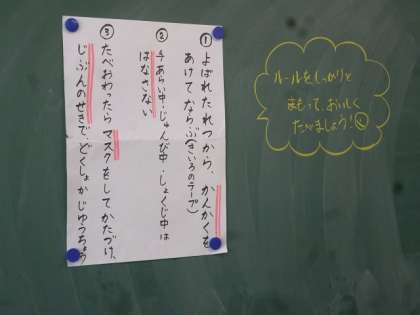 ①よばれたれつから、かんかくを
あけてならぶ(きいろのテープ)
②手あらい中・じゅんび中・しょくじ中は
はなさない
③たべおわったらマスクをしてかたづけ、
じぶんのせきで、どくしょかじゆうちょう
ルールをしっかりと
まもって、おいしく
たべましょう!